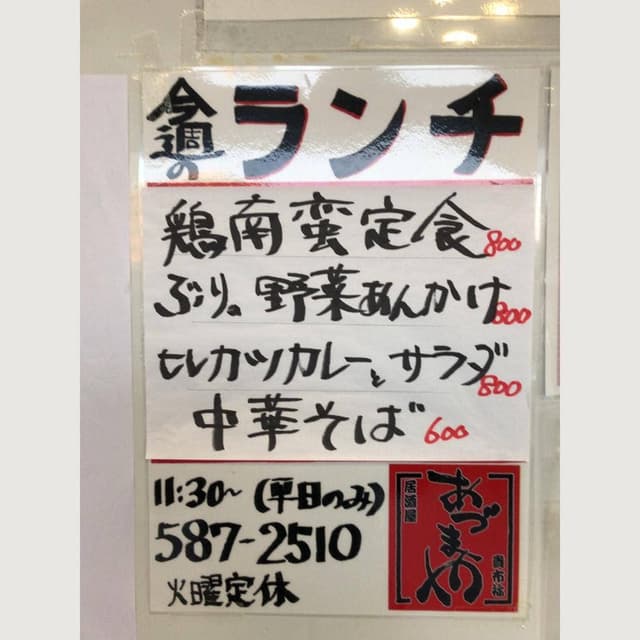 今週の ランチ
鶏南蛮定食 800
ぶり。野菜あんかけ 800
ヒレカツカレーとサラダ 800
中華そば 600
11:30~ (平日のみ)
587-2510
火曜定休
居酒屋
あづま